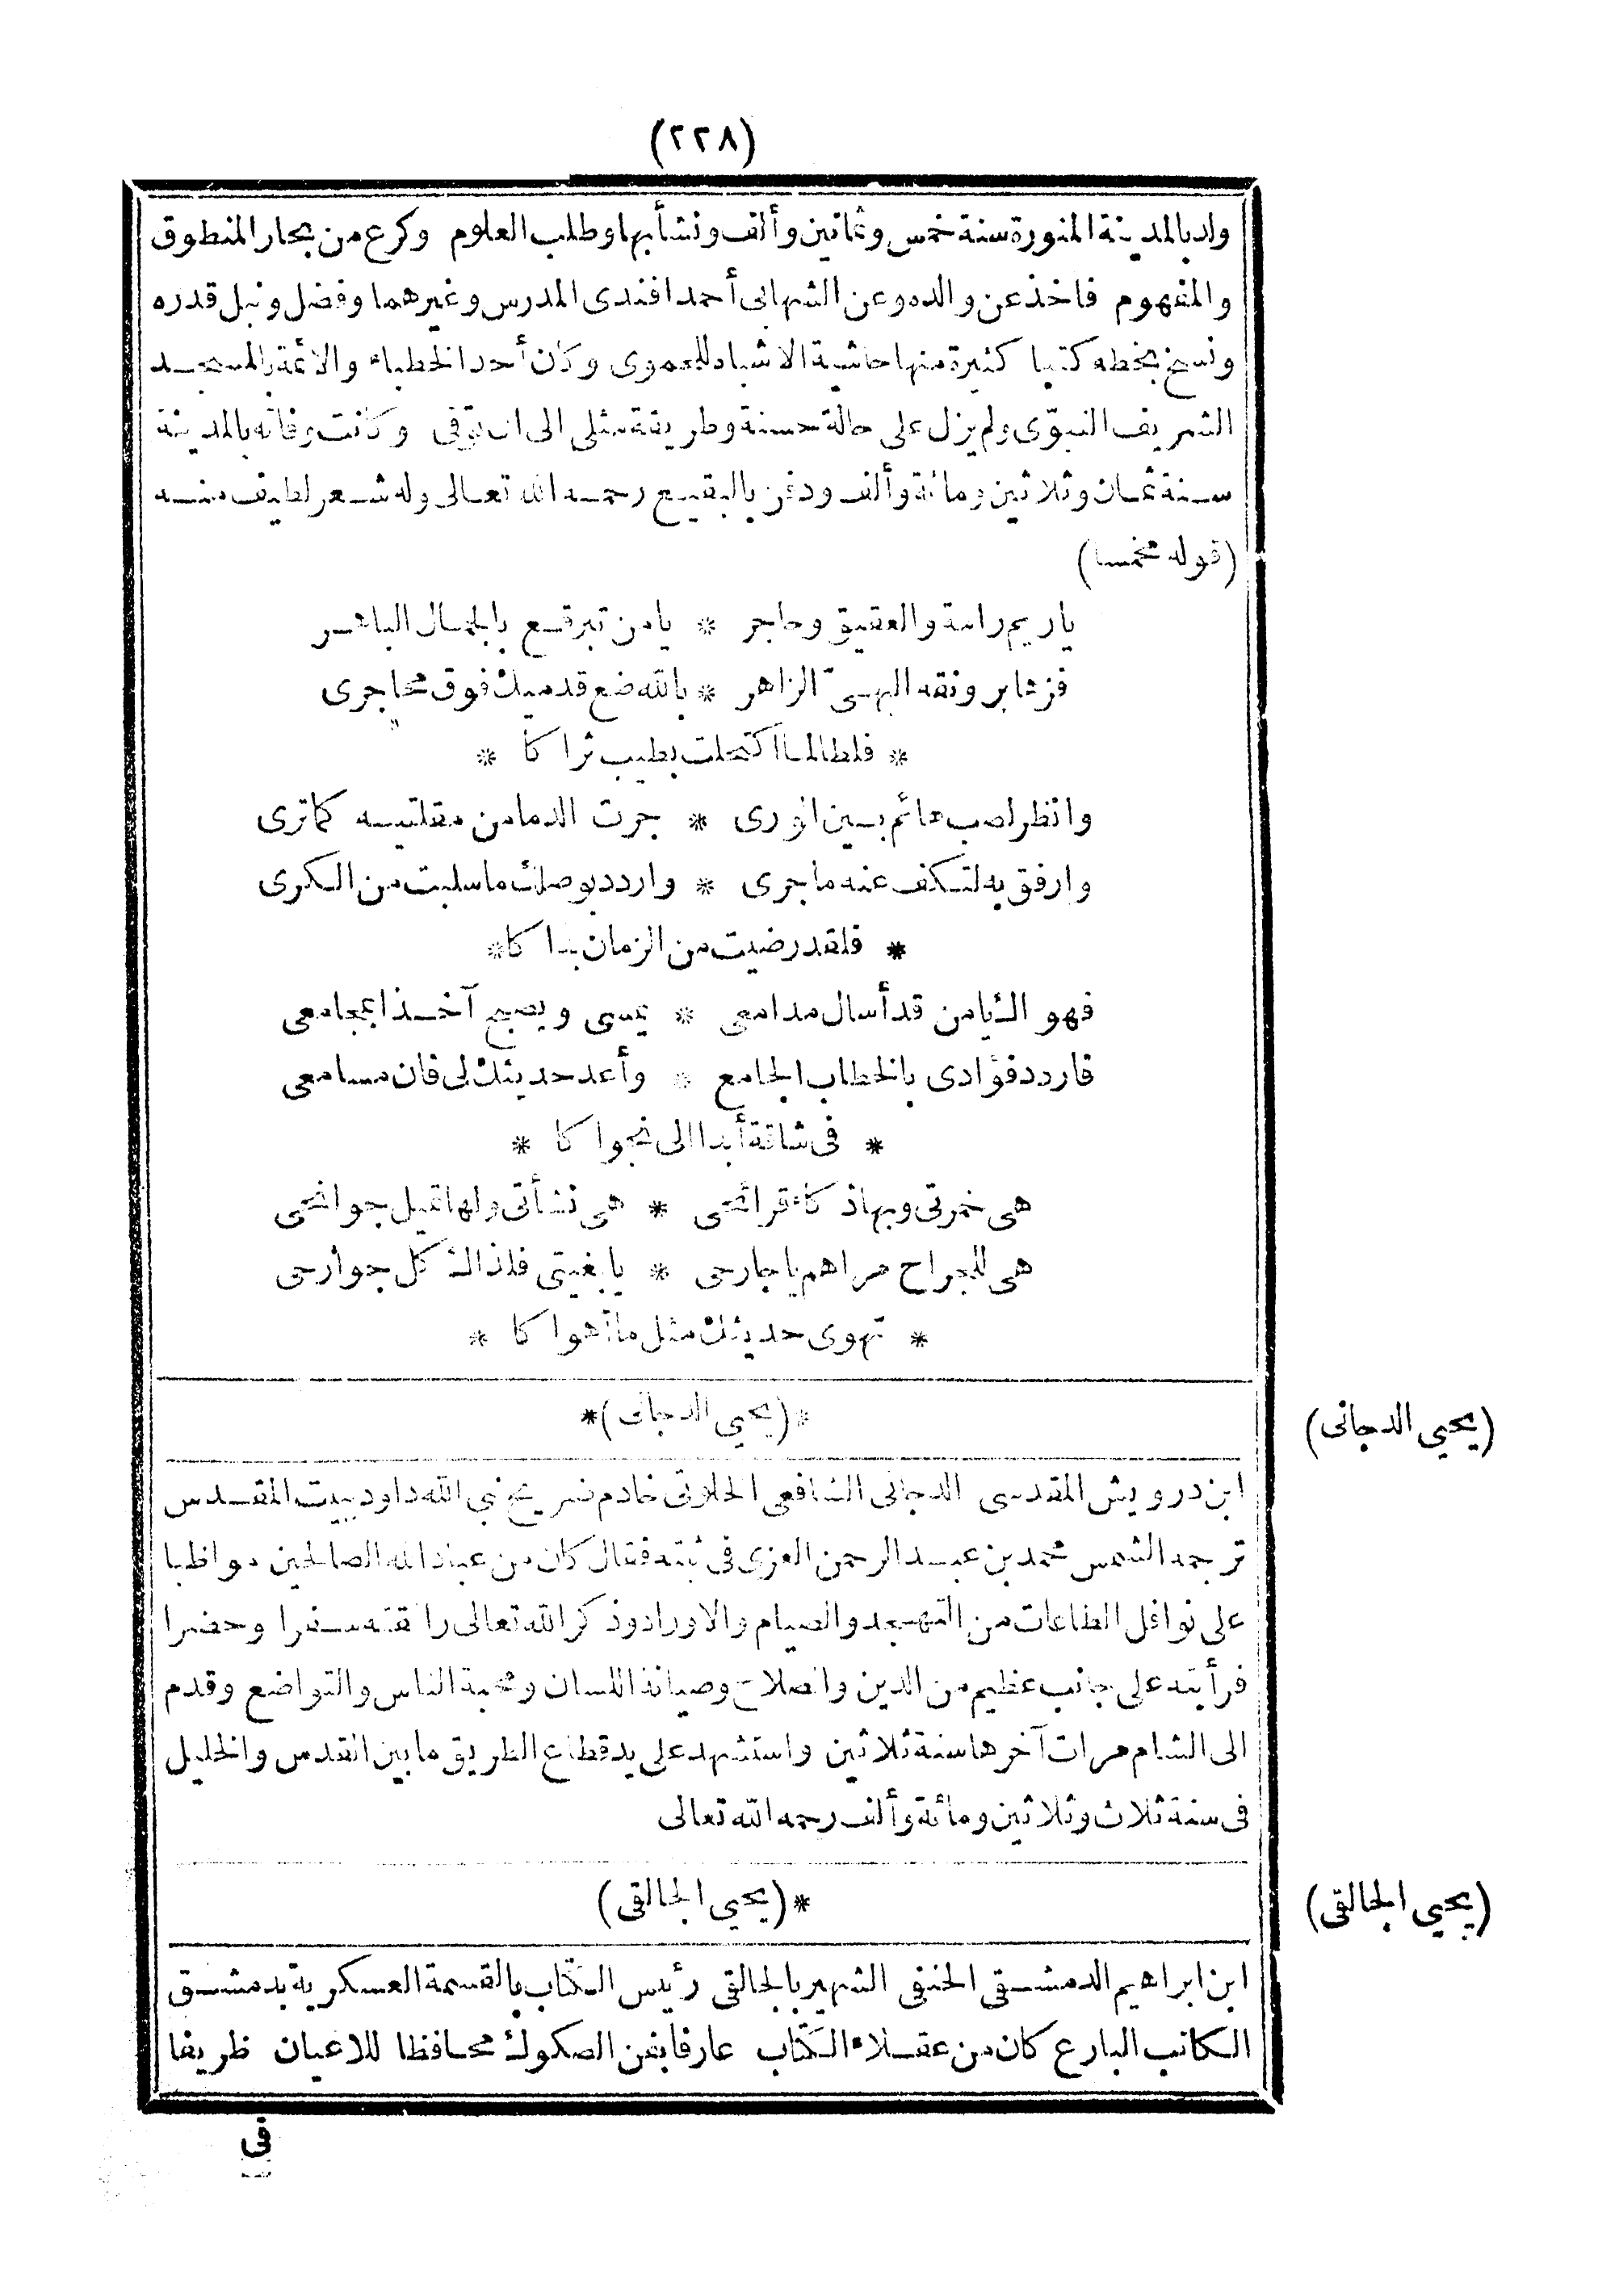 (٢٢٨)
ولد بالمدينة المنورة سنة خمس وثمانين وألف ونشأ بها وطلب العلوم وكرع من بحار المنطوق
والمفهوم فاخذ عن والده وعن الشهابى أحمد افندى المدرس وغيرهما وفضل ونبل قدره
ونسخ بخطه كتبا كثيرة منها حاشية الاشباه للحموى وكان أحد الخطباء والائمة بالمسجد
الشريف النبوّى ولم يزل على حالة حسنة وطريقة مثلى الى ان توفى وكانت وفاته بالمدينة
سنة ثمان وثلاثين ومائة وألف ودفن بالبقيع رحمه الله تعالى وله شعر لطيف منه
(قوله مخمسا)
ياريم رامة والعقيق وحاجر * يامن تبرقع بالجمال الباهر
فزها برونقه البهىّ الزاهر * بالله ضع قدميك فوق محاجرى
* فلطالما اكتحلت بطيب ثراكا *
وانظر لصب هائم بين الورى * جرت الدما من مقلتيه كماترى
وارفق به لتكف عنه ماجرى * واردد بوصلك ما سلبت من الكرى
* فلقد رضيت من الزمان بذاكا *
فهو الذى من قد أسال مدامعى * يمسى ويصبح آخذا بمجامعى
فاردد فؤادى بالخطاب الجامع * وأعد حديثك لى فان مسامعى
* فى شاقة أبدا الى نجواكا *
هى خمرتى وبها ذكاء قرائحى * هى نشأتى ولها تميل جوانحى
هى للجراح مراهم ياجارحى * يا بغيتى فلذاك كل جوارحى
* تهوى حديثك مثل ما أهواكا *
*(يحيى الدجانى)*
(يحيى الدجانى)
ابن درويش المقدسى الدجانى الشافعى الخلوتى خادم ضريح نبي الله داود ببيت المقدس
ترجمه الشمس محمد بن عبد الرحمن الغزى فى ثبته فقال كان من عباد الله الصالحين مواظبا
على نوافل الطاعات من التهجد والصيام والاوراد وذكر الله تعالى رافقته سفرا وحضرا
فرأيته على جانب عظيم من الدين والصلاح وصيانة اللسان ومحبة الناس والتواضع وقدم
الى الشام مرات آخرها سنة ثلاثين واستشهد على يد قطاع الطريق ما بين القدس والخليل
فى سنة ثلاث وثلاثين ومائة وألف رحمه الله تعالى
*(يحيى الجالقى)
(يحيى الجالقى)
ابن ابراهيم الدمشقى الحنفى الشهير بالجالقى رئيس الكتاب بالقسمة العسكرية بدمشق
الكاتب البارع كان من عقلاء الكتاب عارفا بفن الصكوك محافظا للاعيان ظريفا
فى